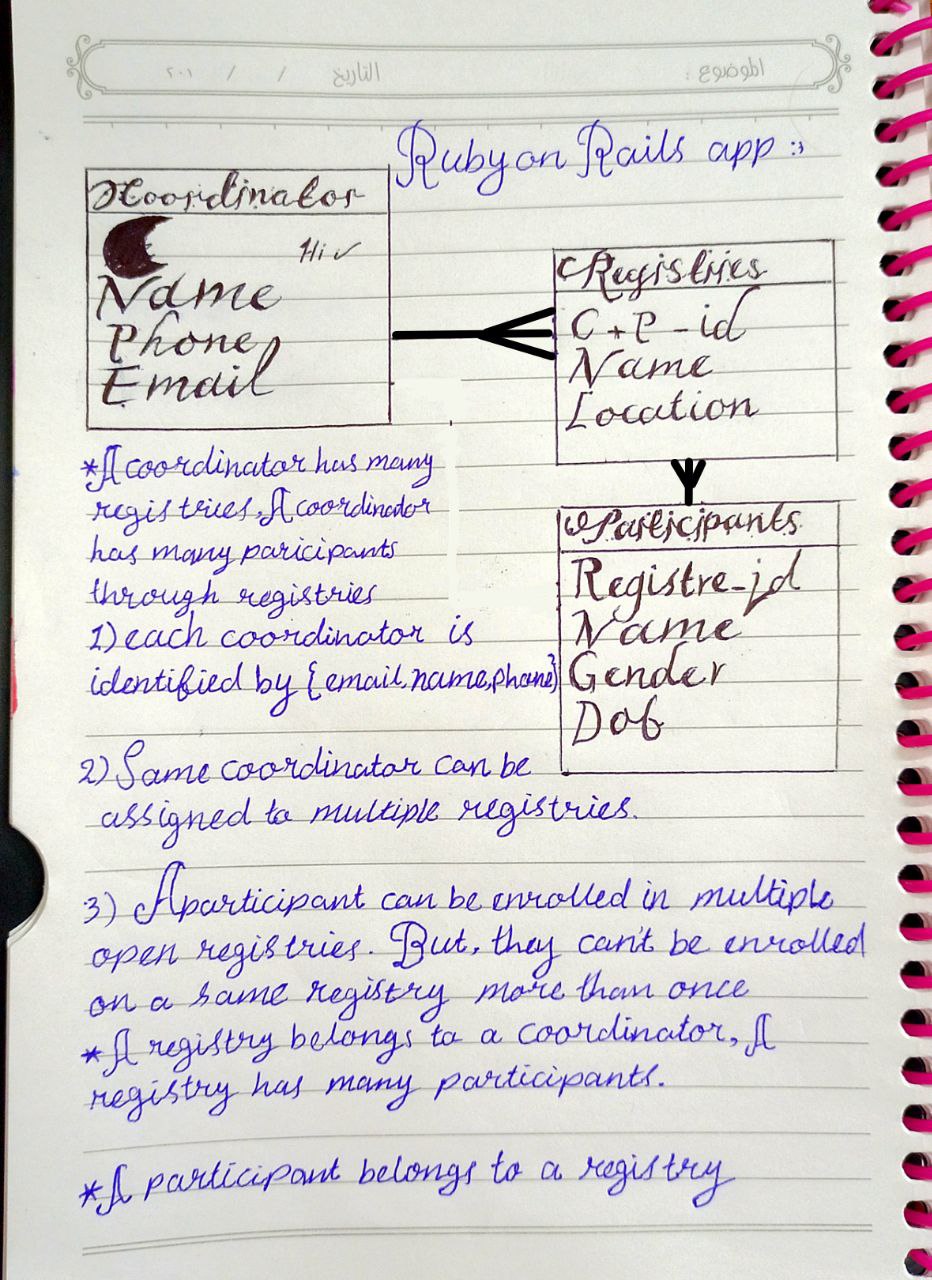 الموضوع :
التاريخ / / ٢٠١
Ruby on Rails app :
Coordinator
Hi ✓
Name
Phone
Email
Registries
C + P - id
Name
Location
Participants
Registre_id
Name
Gender
Dob
*A coordinator has many
registries. A coordinator
has many paricipants
through registries
1) each coordinator is
identified by {email, name, phone}
2) Same coordinator can be
assigned to multiple registries.
3) A participant can be enrolled in multiple
open registries. But, they can't be enrolled
on a same registry more than once
*A registry belongs to a coordinator, A
registry has many participants.
*A participant belongs to a registry